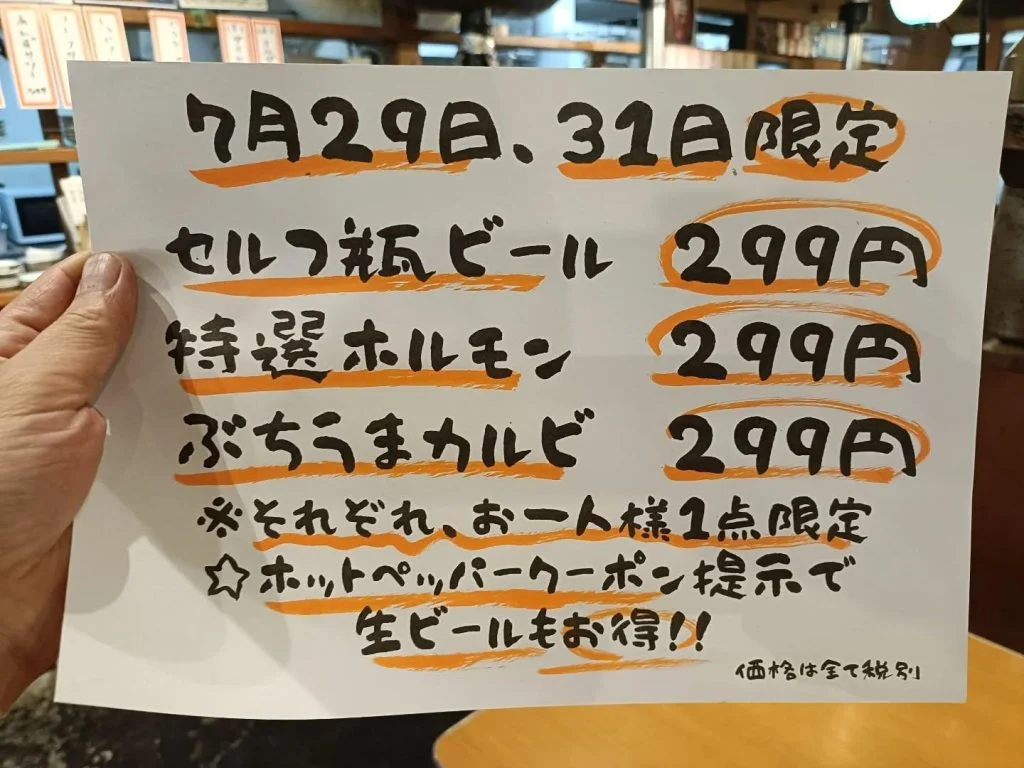 7月29日、31日限定
セルフ瓶ビール 299円
特選ホルモン 299円
ぶちうまカルビ 299円
※それぞれ、お一人様1点限定
☆ホットペッパークーポン提示で
生ビールもお得!!
価格は全て税別